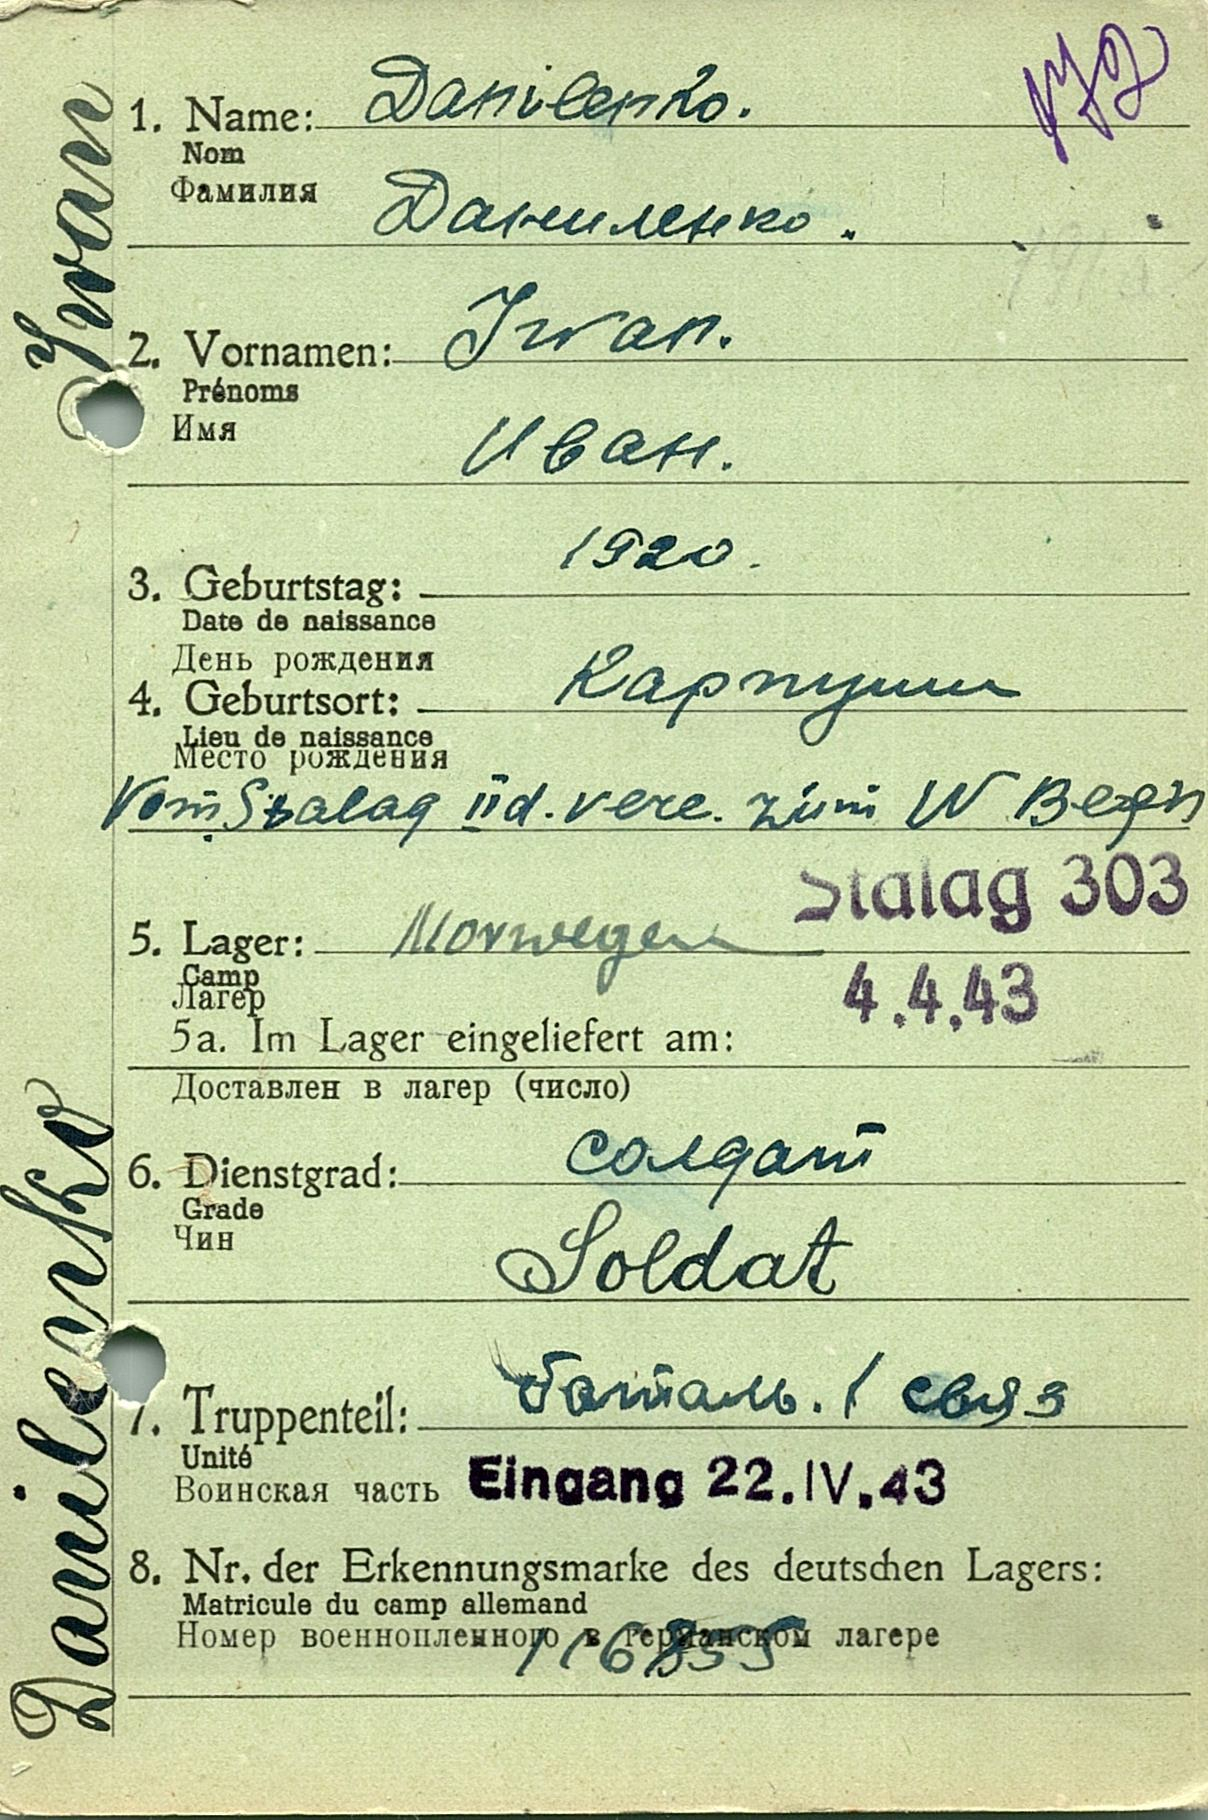 172
1. Name: Danilenko.
Nom
Фамилия
Даниленко.
2. Vornamen: Iwan.
Prénoms
Имя
Иван.
1920.
3. Geburtstag:
Date de naissance
День рождения
4. Geburtsort: Карпуши
Lieu de naissance
Место рождения
Vom Stalag IId. vere. zum W Bergn
Stalag 303
5. Lager: Norwegen
Camp
Лагер
4.4.43
5a. Im Lager eingeliefert am:
Доставлен в лагер (число)
6. Dienstgrad: солдат
Grade
Чин
Soldat
7. Truppenteil: баталь. 1 связ
Unité
Воинская часть Eingang 22.IV.43
8. Nr. der Erkennungsmarke des deutschen Lagers:
Matricule du camp allemand
Номер военнопленного в германском лагере
116855
Danilenko Iwan